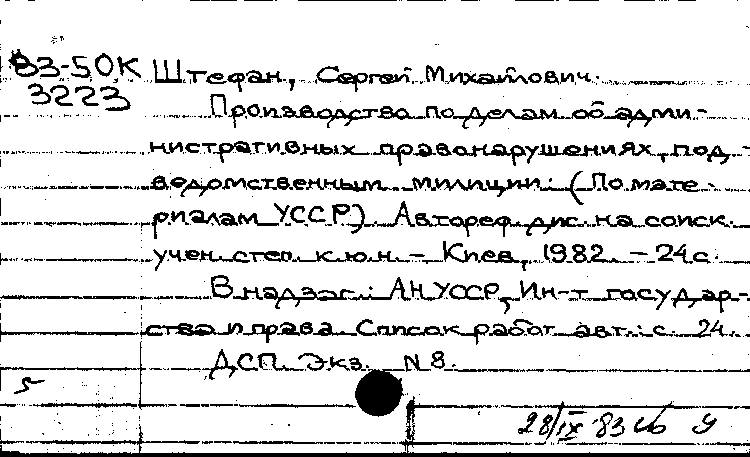 83-50К
3223
Штефан, Сергей Михайлович.
Производство по делам об адми-
нистративных правонарушениях, под-
ведомственным милиции: (По мате-
риалам УССР). Автореф. дис. на соиск.
учен. степ. к.ю.н. - Киев, 1982. - 24 с.
В надзаг.: АН УССР, Ин-т государ-
ства и права. Список работ авт.: с. 24.
ДСП. Экз. N 8.
5
28/IX 83